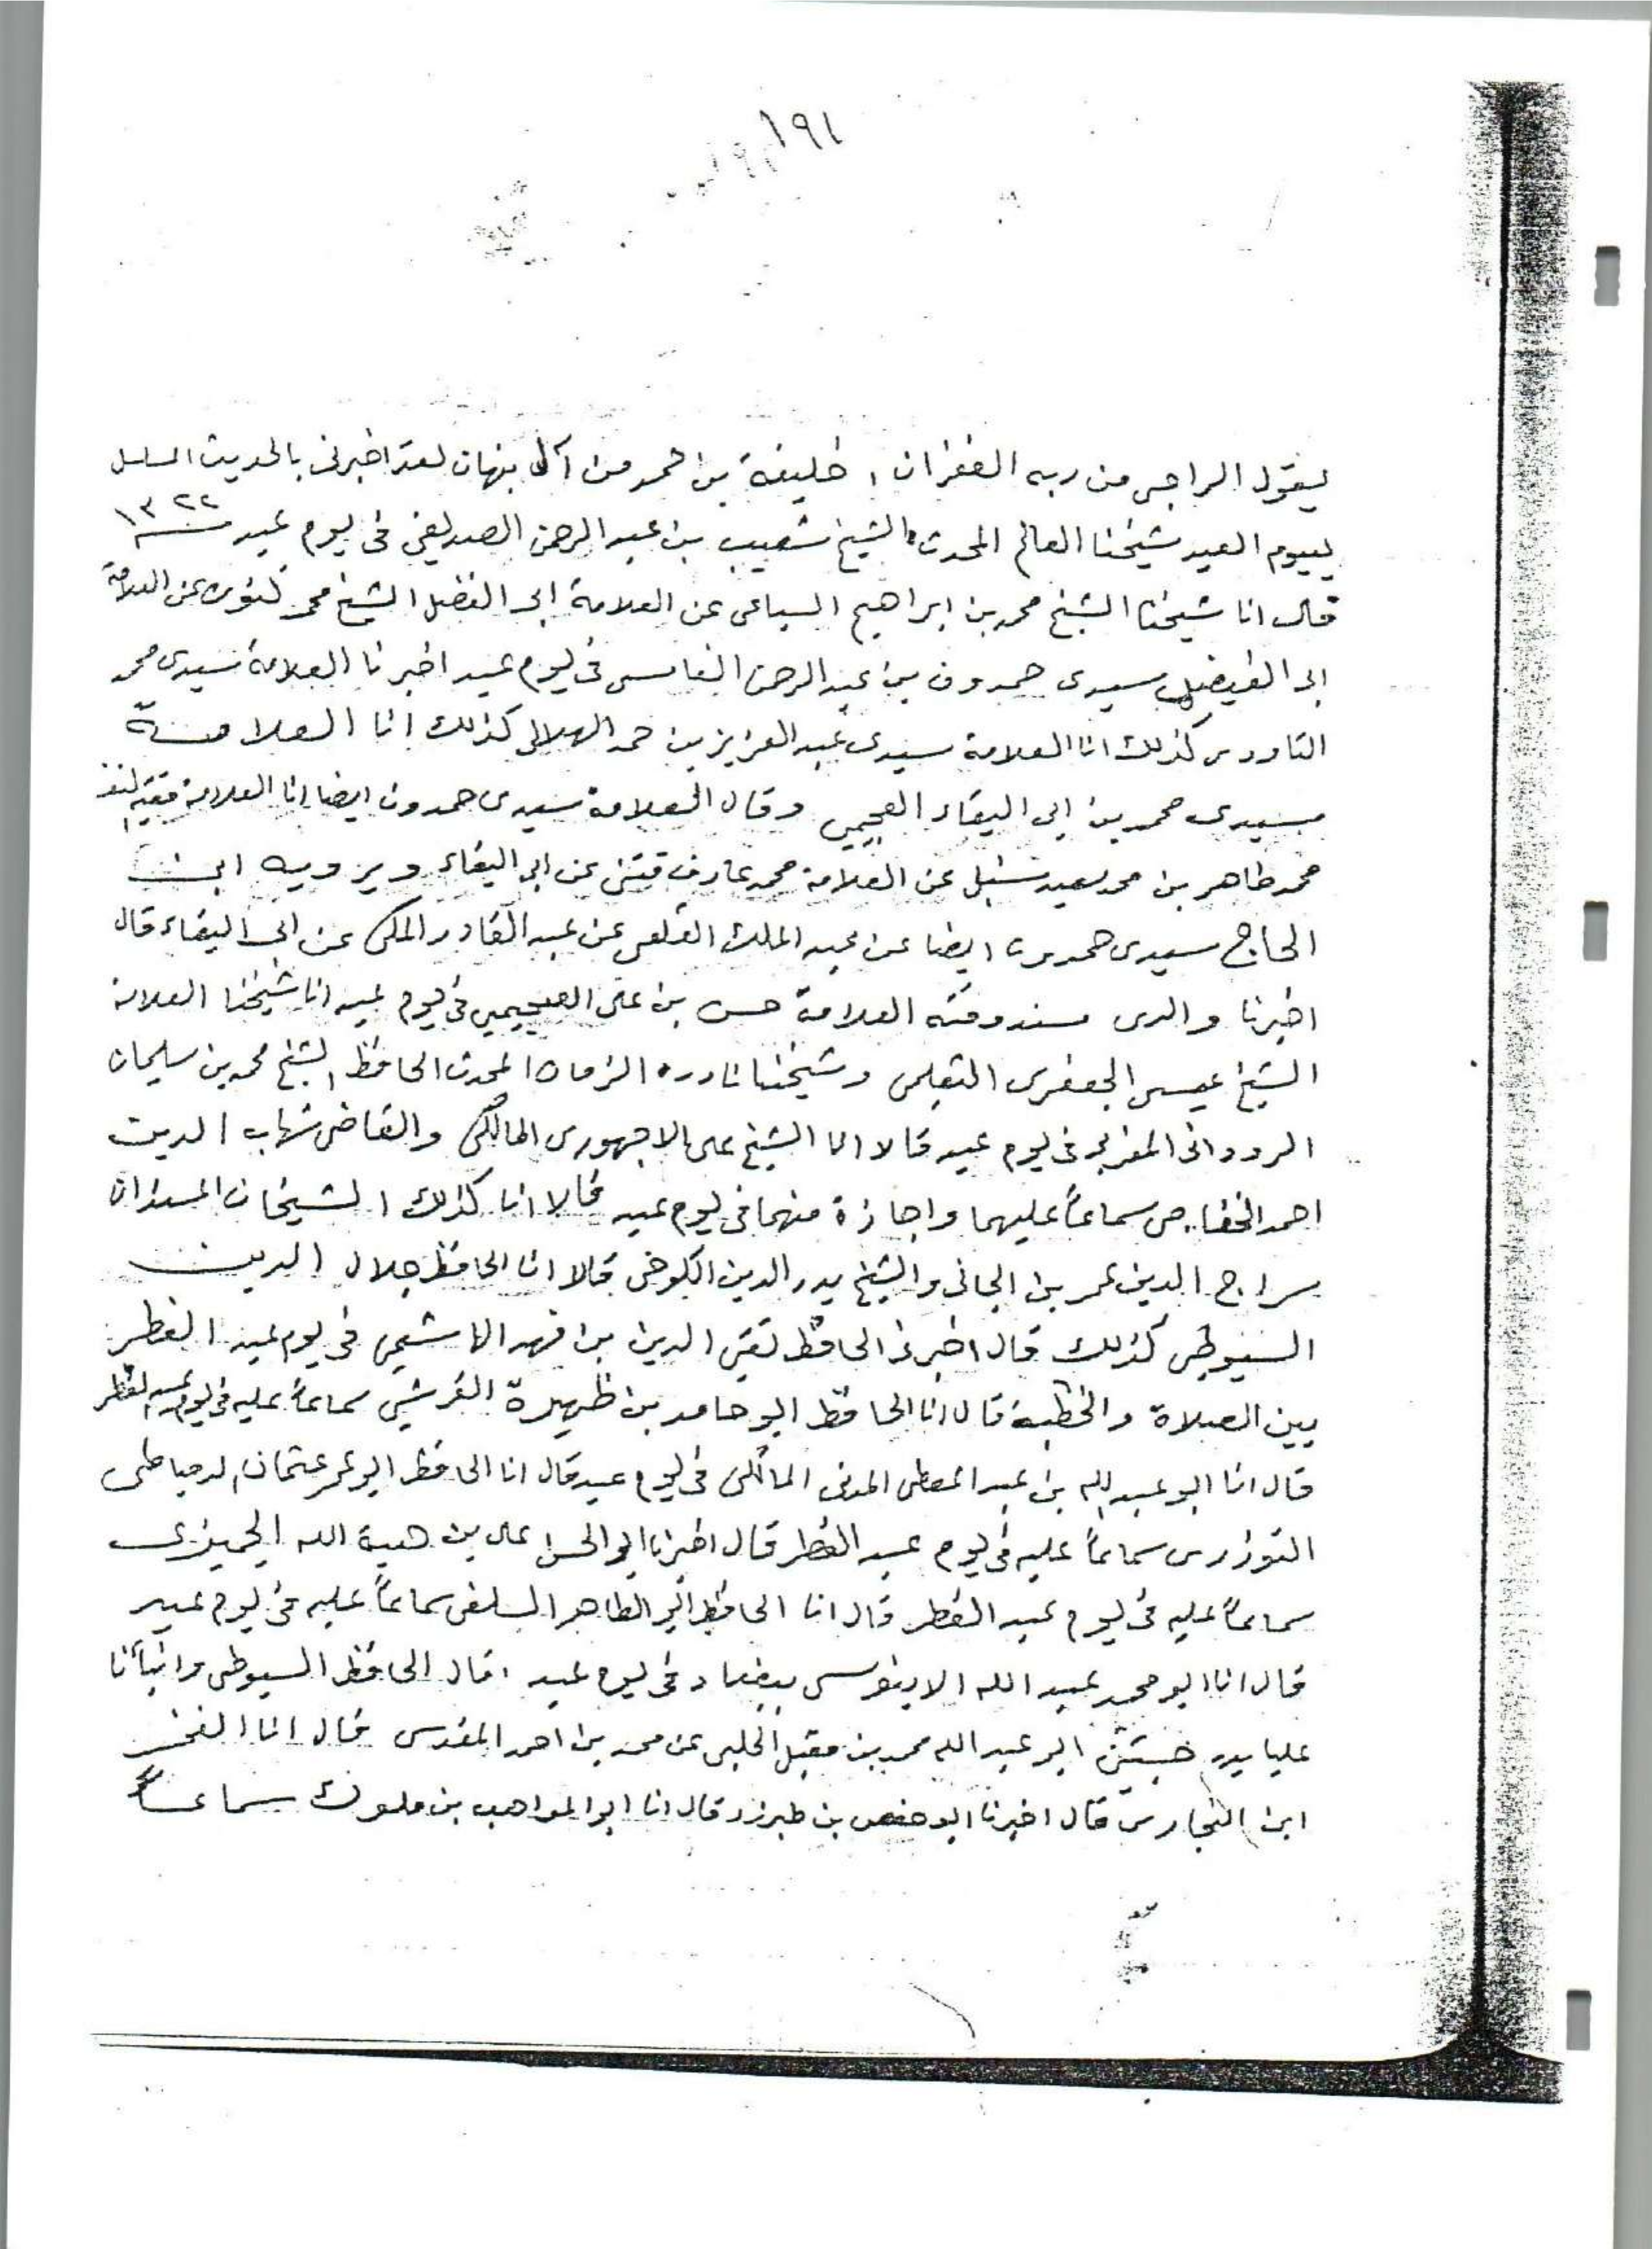 ١٩١
يقول الراجي من ربه الغفران ، خليفة بن حمد من آل نبهان لقد اخبرني بالحديث المسلسل
بيوم العيد شيخنا العالم المحدث الشيخ شعيب بن عبد الرحمن الصديقي في يوم عيد سنة ١٣٢٢
قال انا شيخنا الشيخ محمد بن ابراهيم السباعي عن العلامة ابي الفضل الشيخ محمد كنون عن العلامة
ابي الفيض سيدي حمدون بن عبد الرحمن الفاسي في يوم عيد اخبرنا العلامة سيدي محمد
التاودي كذلك انا العلامة سيدي عبد العزيز بن حمد الهلالي كذلك انا العلامة
سيدي محمد بن ابي البقاء العجيمي وقال العلامة سيدي حمدون ايضا انا العلامة
محمد طاهر بن محمد سعيد سنبل عن العلامة محمد عارف فتني عن ابي البقاء ويرويه ابن
الحاج سيدي حمدون ايضا عن عبد الملك القلعي عن عبد القادر المكي عن ابي البقاء قال
اخبرنا والدي مسند وقته العلامة حسن بن علي العجيمي في يوم عيد انا شيخنا العلامة
الشيخ عيسى الجعفري الثعلبي وشيخنا نادرة الزمان المحدث الحافظ الشيخ محمد بن سليمان
الروداني المغربي في يوم عيد قالا انا الشيخ علي الاجهوري المالكي والقاضي شهاب الدين
احمد الخفاجي سماعاً عليهما واجازة منهما في يوم عيد قالا انا كذلك الشيخان المسندان
سراج الدين عمر بن الجائي والشيخ بدر الدين الكرخي قالا انا الحافظ جلال الدين
السيوطي كذلك قال اخبرنا الحافظ تقي الدين بن فهد الهاشمي في يوم عيد الفطر
بين الصلاة والخطبة قال انا الحافظ ابو حامد بن ظهيرة القرشي سماعاً عليه في يوم عيد الفطر
قال انا ابو عبد الله بن عبد المعطي المدني المالكي في يوم عيد قال انا الحافظ ابو عمر عثمان الدمياطي
التوزري سماعاً عليه في يوم عيد الفطر قال اخبرنا ابو الحسن علي بن هبة الله الجميزي
سماعاً عليه في يوم عيد الفطر قال انا الحافظ ابو الطاهر السلفي سماعاً عليه في يوم عيد
قال انا ابو محمد عبد الله الابنوسي ببغداد في يوم عيد ، قال الحافظ السيوطي وانبأنا
عاليا بدرجتين ابو عبد الله محمد بن مقبل الحلبي عن محمد بن احمد المقدسي قال انا الفخر
ابن النجاري قال اخبرنا ابو حفص بن طبرزد قال انا ابو المواهب بن ملوك سماعاً